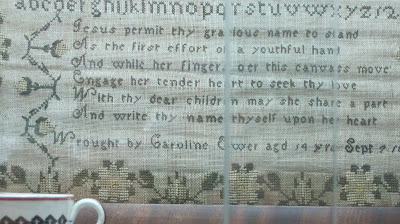 abcdefghijklmnopqrstuvwxyz12
Jesus permit thy gracious name to stand
As the first effort of a youthful hand
And while her fingers oer this canvass move
Engage her tender heart to seek thy love
With thy dear children may she share a part
And write thy name thyself upon her heart
Wrought by Caroline aged 14 yrs Sept